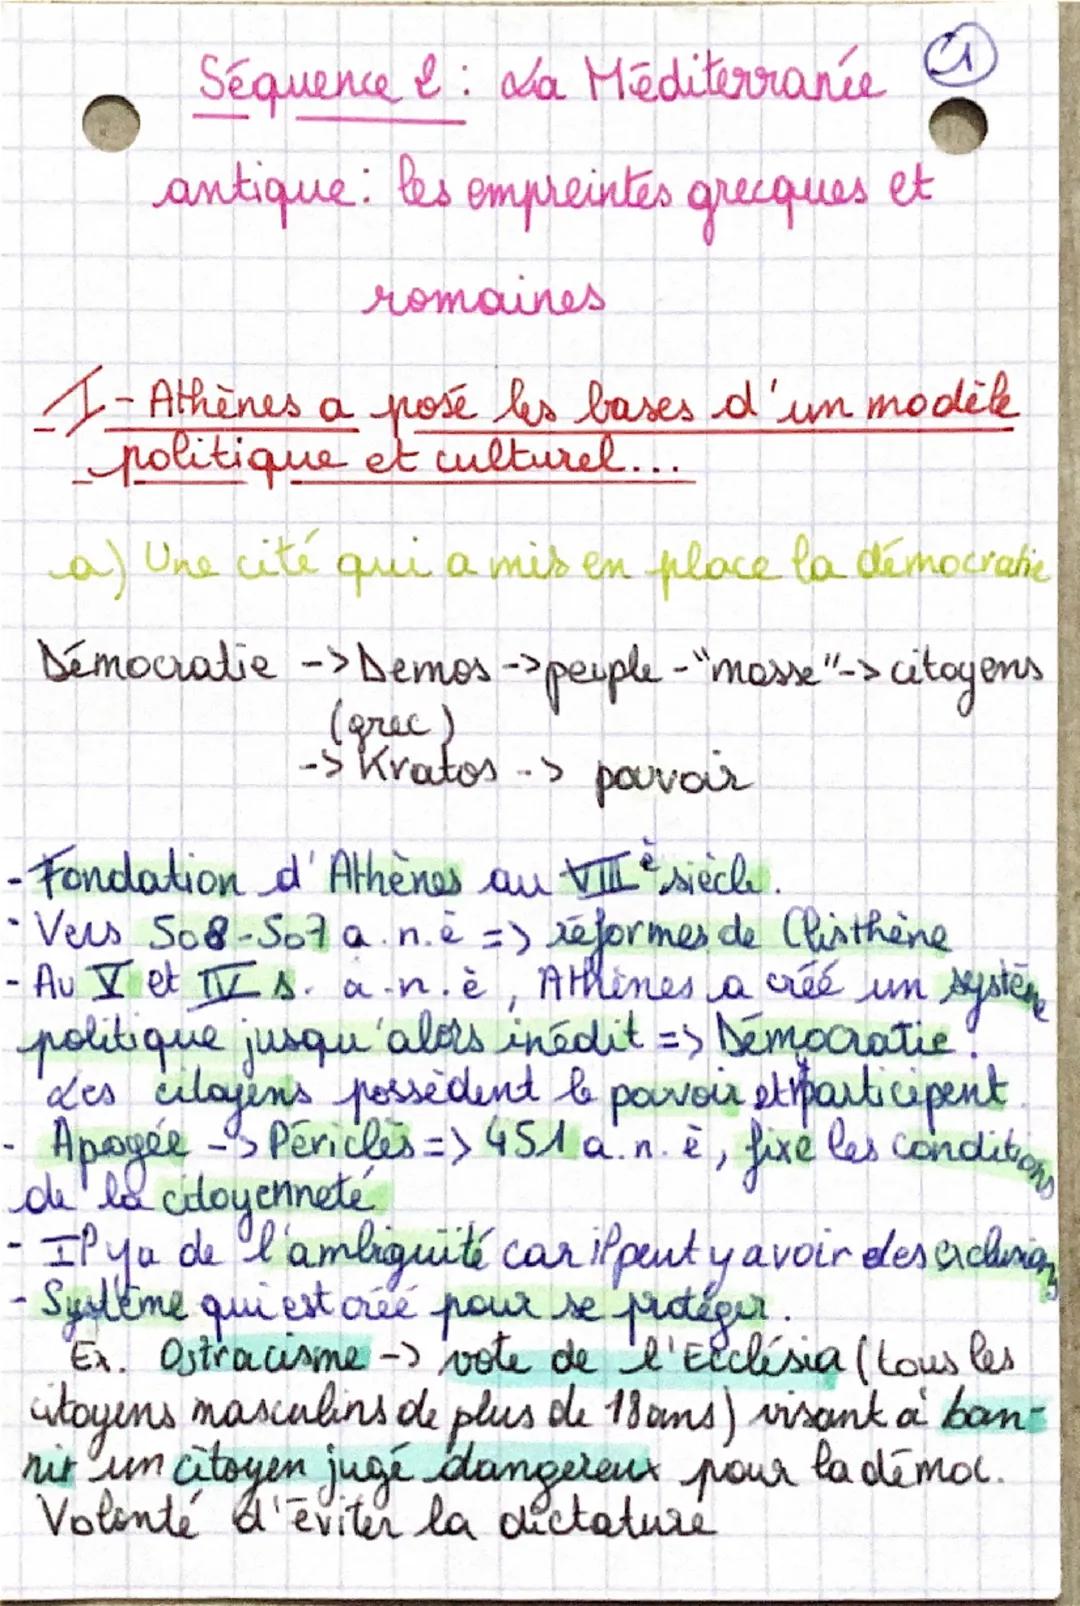 1
Séquence 2 : La Méditerranée
antique : les empreintes grecques et
romaines
I - Athènes a posé les bases d'un modèle
politique et culturel...
a) Une cité qui a mis en place la démocratie
Démocratie -> Demos -> peuple - "masse" -> citoyens
(grec)
-> Kratos -> pouvoir
- Fondation d'Athènes au VIIIè siècle.
- Vers 508-507 a.n.è => réformes de Clisthène
- Au V et IV s. a.n.è, Athènes a créé un système
politique jusqu'alors inédit => Démocratie.
Les citoyens possèdent le pouvoir et participent.
- Apogée -> Périclès => 451 a.n.è, fixe les conditions
de la citoyenneté
- Il y a de l'ambiguité car il peut y avoir des exclusions
- Système qui est créé pour se protéger.
Ex. Ostracisme -> vote de l'Ecclésia (tous les
citoyens masculins de plus de 18 ans) visant à ban-
nir un citoyen jugé dangereux pour la démoc.
Volonté d'éviter la dictature